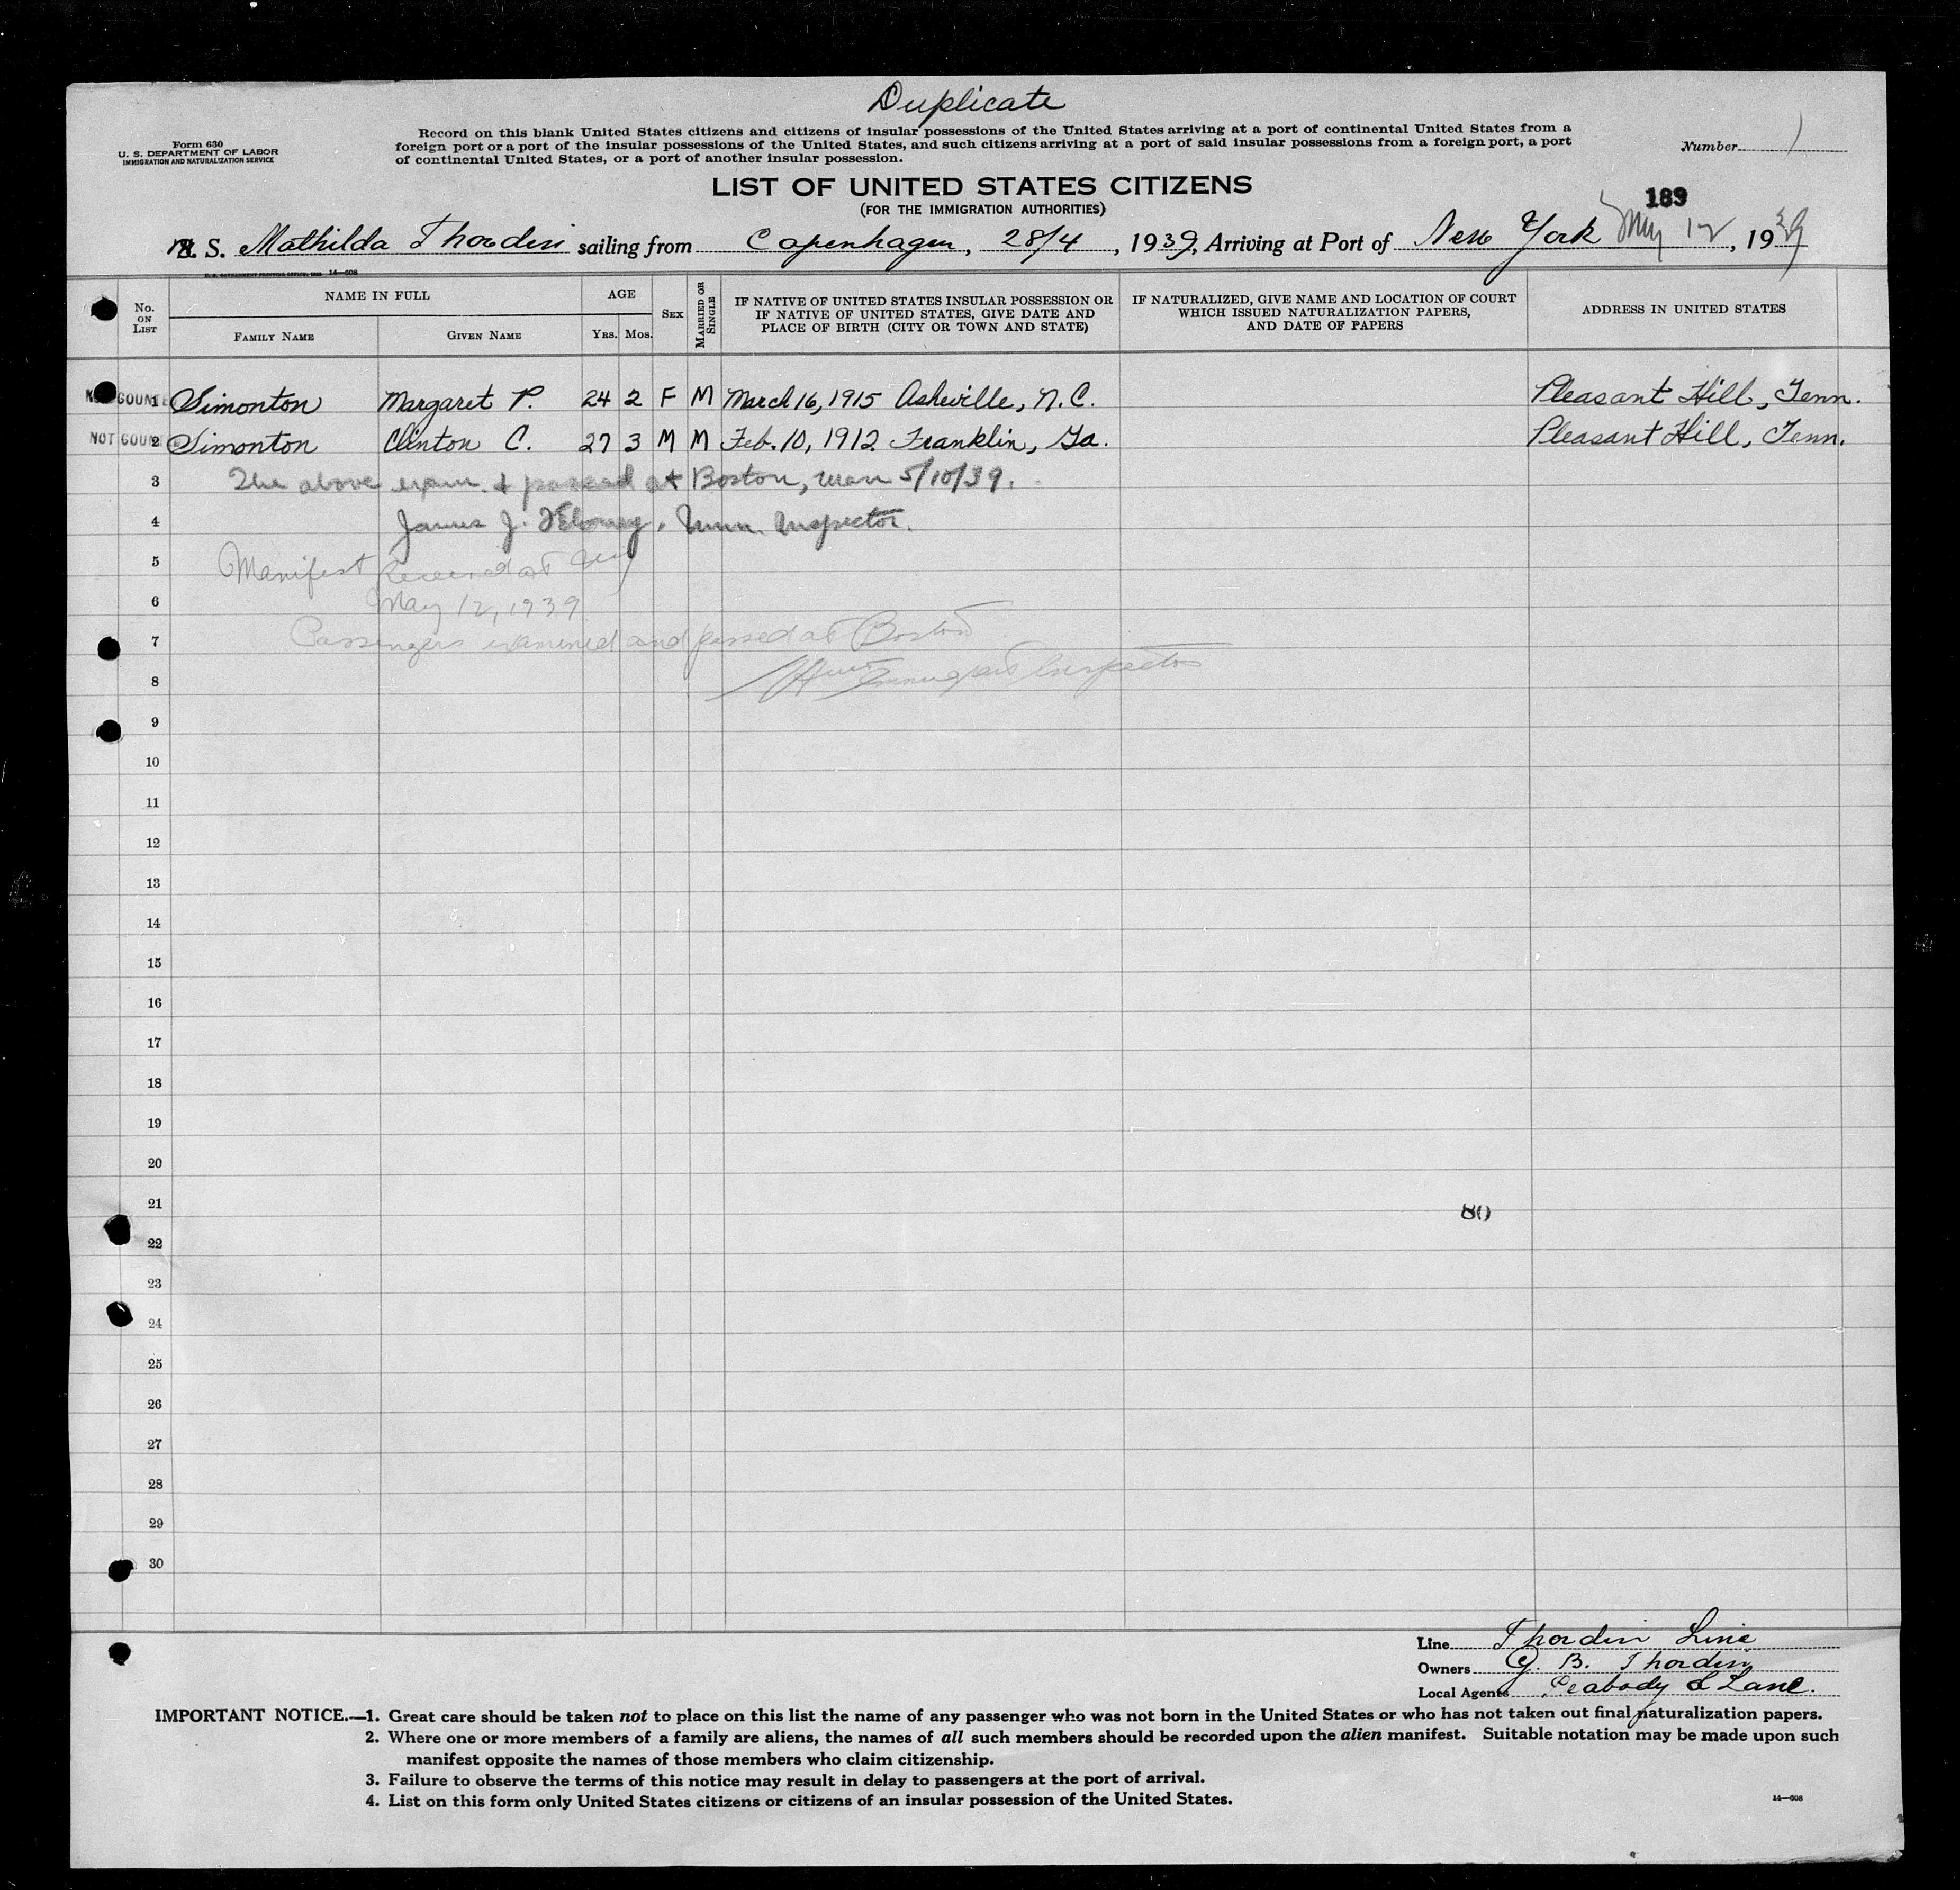 Duplicate
Form 630
U. S. DEPARTMENT OF LABOR
IMMIGRATION AND NATURALIZATION SERVICE
Record on this blank United States citizens and citizens of insular possessions of the United States arriving at a port of continental United States from a
foreign port or a port of the insular possessions of the United States, and such citizens arriving at a port of said insular possessions from a foreign port, a port
of continental United States, or a port of another insular possession.
Number 1
LIST OF UNITED STATES CITIZENS
(FOR THE IMMIGRATION AUTHORITIES)
189
S. Mathilda Thordén sailing from Copenhagen, 28/4, 1939, Arriving at Port of New York May 12, 1939
14—608
No. ON LIST
NAME IN FULL
FAMILY NAME GIVEN NAME
AGE
YRS. MOS.
SEX
MARRIED OR SINGLE
IF NATIVE OF UNITED STATES INSULAR POSSESSION OR
IF NATIVE OF UNITED STATES, GIVE DATE AND
PLACE OF BIRTH (CITY OR TOWN AND STATE)
IF NATURALIZED, GIVE NAME AND LOCATION OF COURT
WHICH ISSUED NATURALIZATION PAPERS,
AND DATE OF PAPERS
ADDRESS IN UNITED STATES
1 Simonton Margaret P. 24 2 F M March 16, 1915 Asheville, N.C. Pleasant Hill, Tenn.
NOT 2 Simonton Clinton C. 27 3 M M Feb. 10, 1912 Franklin, Ga. Pleasant Hill, Tenn.
3 The above exam. & passed at Boston, Mass 5/10/39.
4 James J. Imm. Inspector.
5 Manifest Received at NY
6 May 12, 1939
7 Passengers examined and passed at Boston
8 Immigrant Inspector
9
10
11
12
13
14
15
16
17
18
19
20
21
80
22
23
24
25
26
27
28
29
30
Line Thordén Line
Owners G. B. Thordén
Local Agents Peabody & Lane.
IMPORTANT NOTICE.—1. Great care should be taken not to place on this list the name of any passenger who was not born in the United States or who has not taken out final naturalization papers.
2. Where one or more members of a family are aliens, the names of all such members should be recorded upon the alien manifest. Suitable notation may be made upon such
manifest opposite the names of those members who claim citizenship.
3. Failure to observe the terms of this notice may result in delay to passengers at the port of arrival.
4. List on this form only United States citizens or citizens of an insular possession of the United States.
14—608